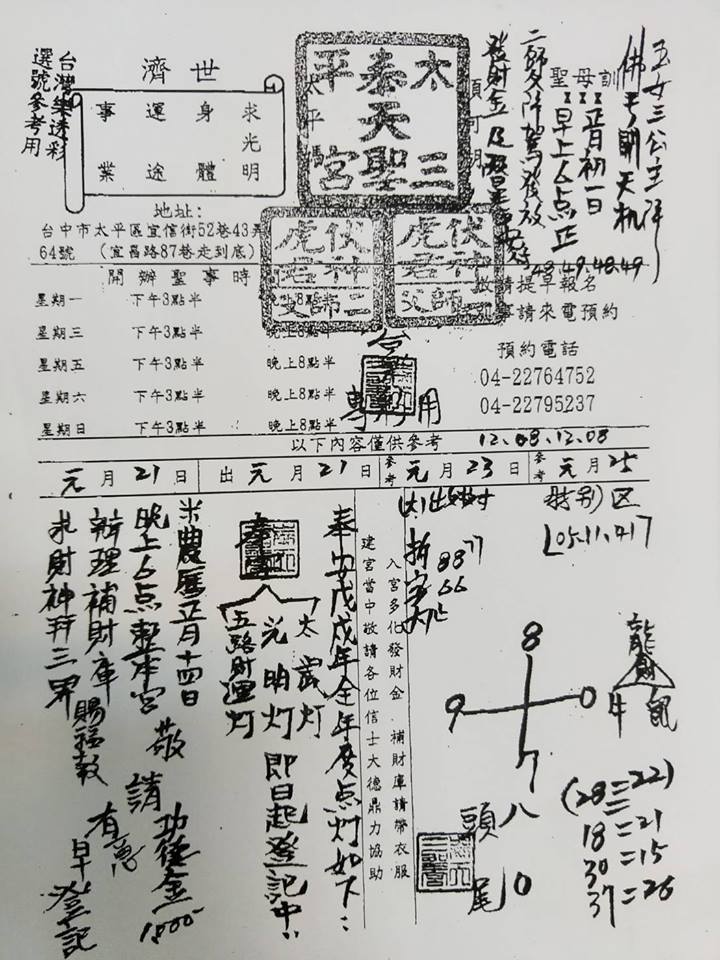 台灣樂透彩
選號參考用
世濟
求光明
身體
運途
事業
地址：
台中市太平區宜信街52巷43弄
64號 （宜昌路87巷走到底）
太三
泰天聖
平宮
伏虎
神君
二師父
伏虎
神君
二師父
聖母訓
正月初一日
早上6点正
48.49.48.49
敬請提早報名
預約電話
04-22764752
04-22795237
開辦聖事時
星期一 下午3點半 晚上8點半
星期三 下午3點半 晚上8點半
星期五 下午3點半 晚上8點半
星期六 下午3點半 晚上8點半
星期日 下午3點半 晚上8點半
專用
以下內容僅供參考
12.08.12.08
元月21日
出元月21日
參考元月23日
參考元月25
特別区
05.11.417
77
88
66
入宮多化發財金 補財庫請帶衣服
建宮當中敬請各位信士大德鼎力協助
奉安戊戌年全年度点灯如下:
太歲灯
光明灯
五路財運灯
即日起登記中!!
農曆正月十四日
晚上6点整本宮敬請
辦理補財庫賜福敕
求財神拜三界
功德金1800
有意
早登記
8
9 0
7
頭八
尾0
龍
牛 鼠
(28=22)
18=21
30=15
37=26